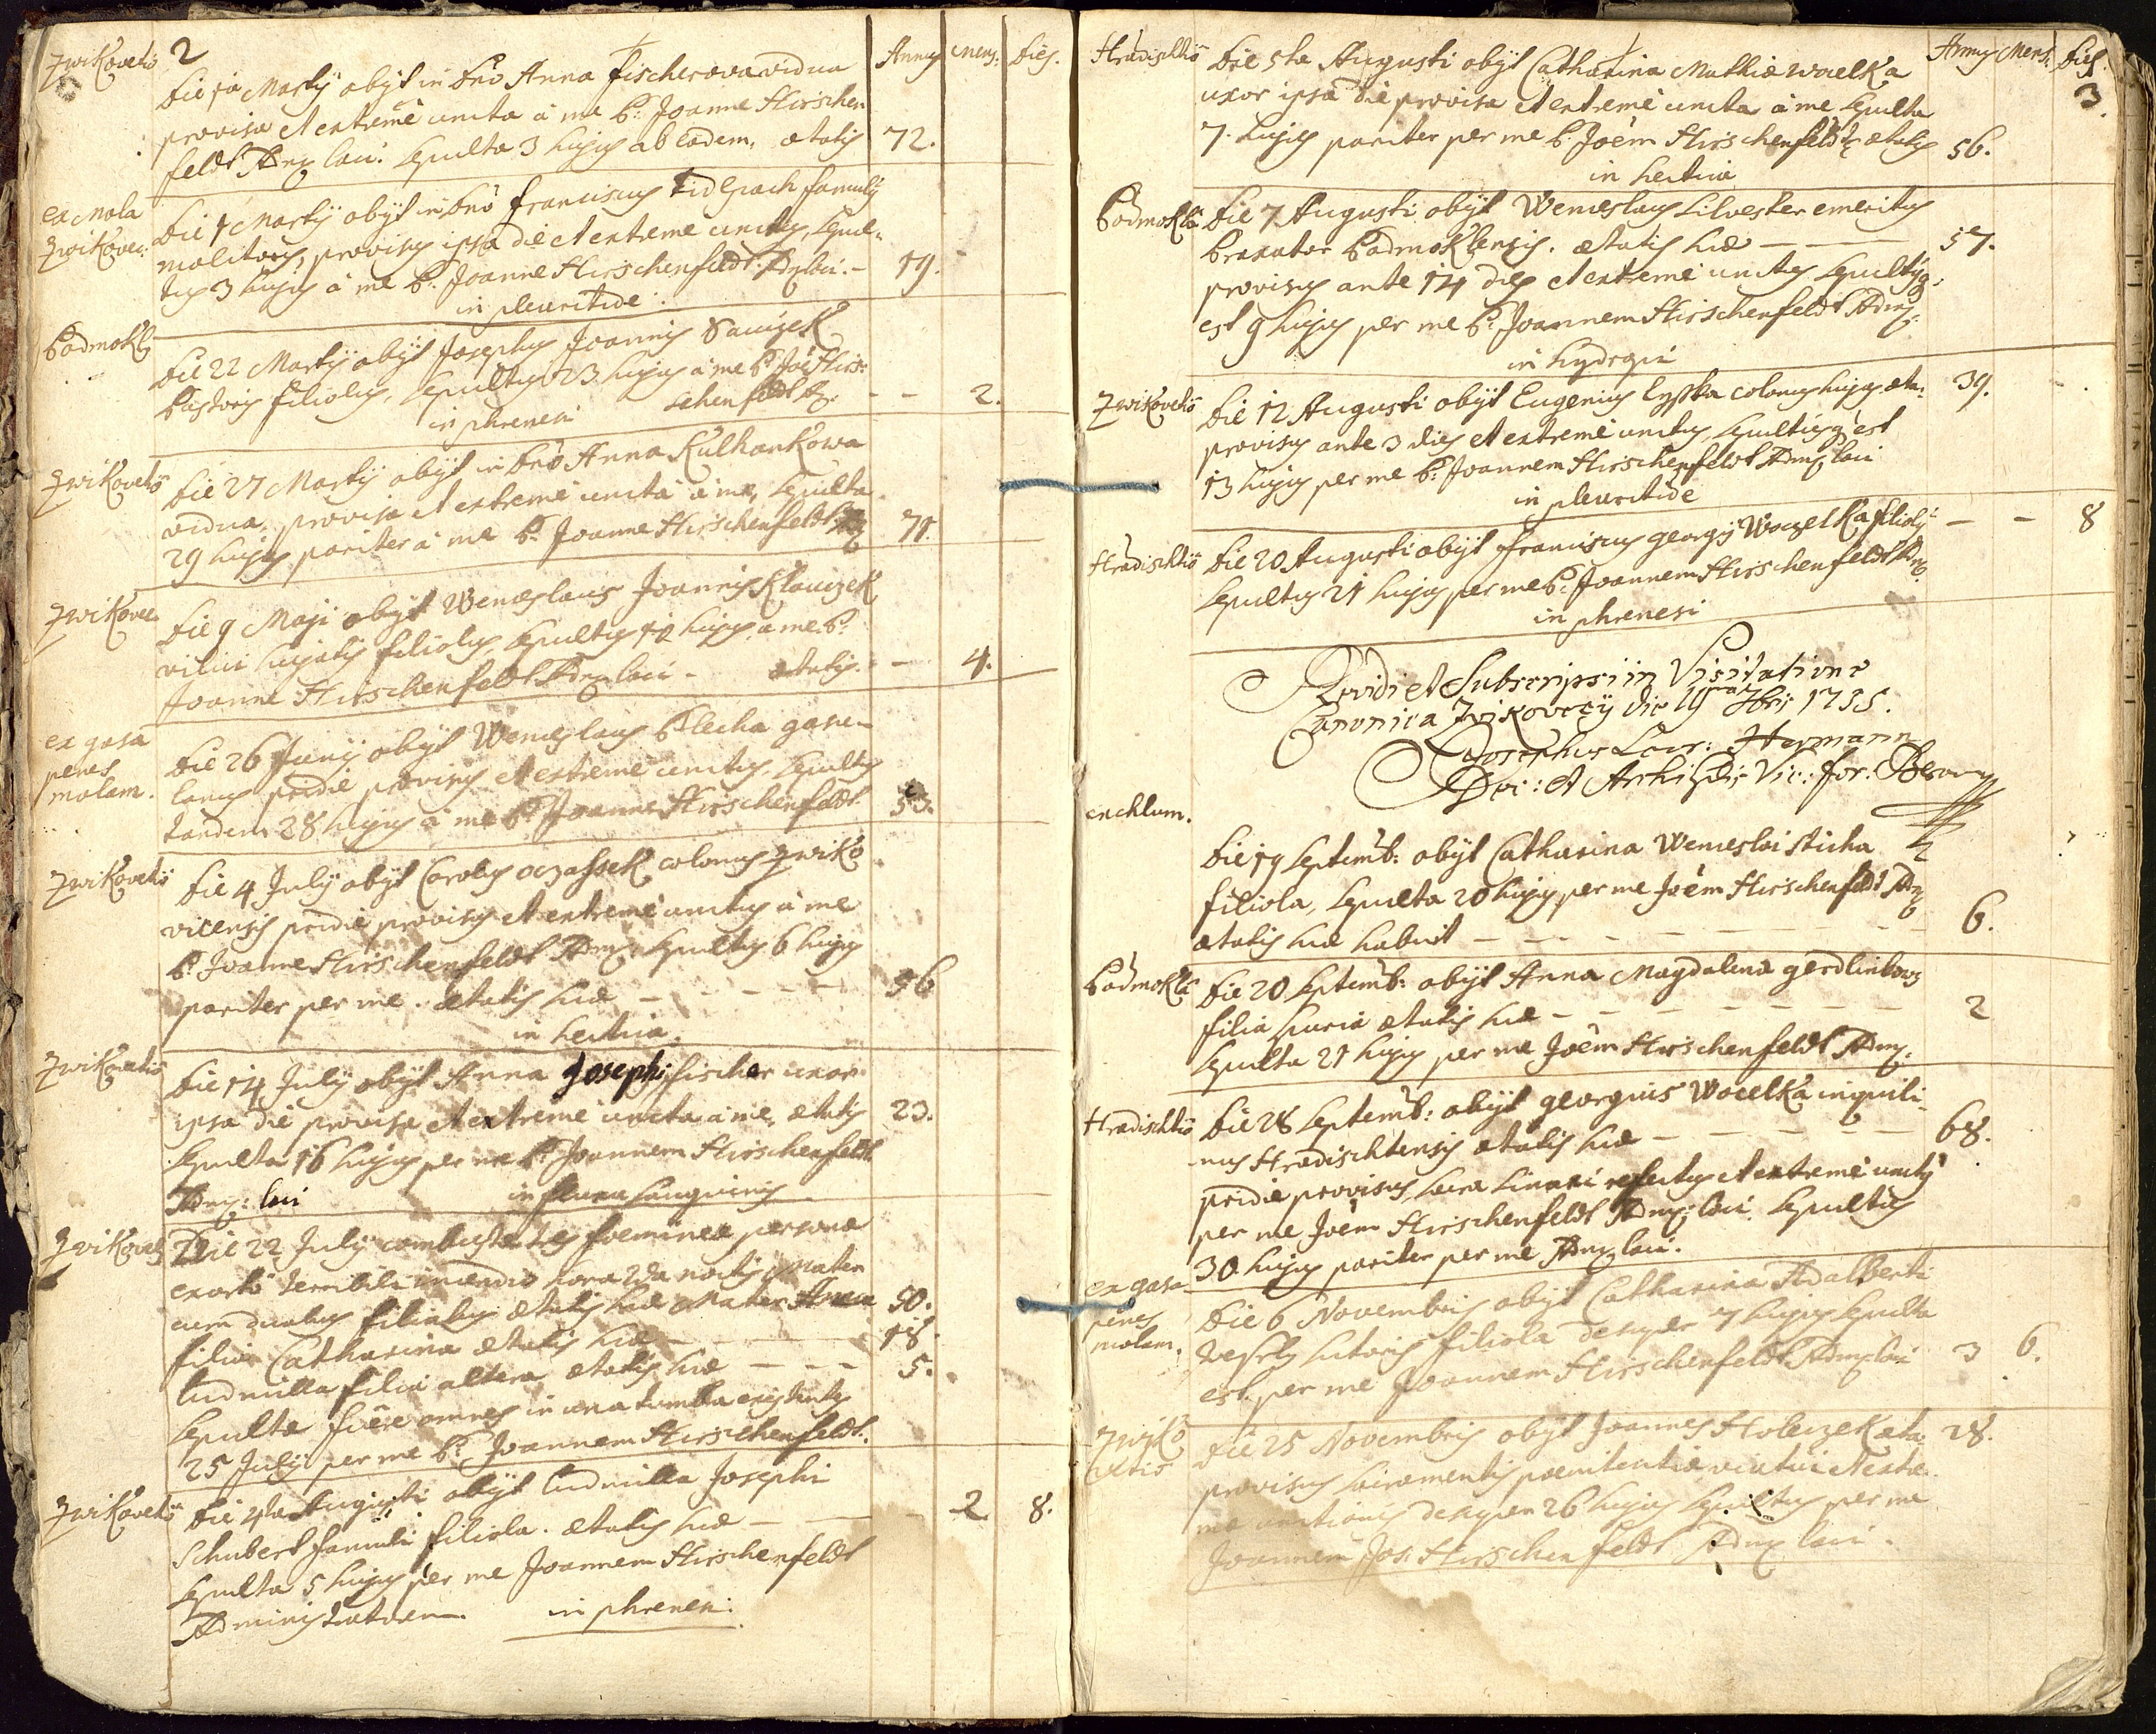 2
Annus Mens: Dies.
Zwikovetio
Die 1a Martÿ obÿt in Dno Anna Fischerova vidua
provisa et extremè uncta à me P: Joanne Hirschen
feldt Adm: loci. Sepulta 3 hujus ab eodem, ætatis 72.
ex Mola
Zwikovec:
Die 1 Martÿ obÿt in Dno Franciscus famulus
molitoris, provisus ipsa die et extreme unctus, sepul-
tus 3 hujus à me P: Joanne Hirschenfeldt Adm loci. - 19.
in pleuritide
Podmokl
Die 22 Martÿ obÿt Josephus Joannis
Pastoris filiolus, sepultus 23 hujus à me P: Jõe Hirs:
chenfeldt A: - - 2.
in phrenesi
Zwikovetio
Die 27 Martÿ obÿt in Dno Anna Kulhankowa
vidua, provisa et extremè uncta à me, sepulta
29 hujus pariter à me P: Joanne Hirschenfeldt 71.
Zwikovec
Die 9 Maji obÿt Wenceslaus Joannis Klauczek
villici hujatis filiolus, sepultus 10 hujus, à me P:
Joanne Hirschenfeldt Adm loci - ætatis - 4.
ex gasa
penes
molam.
Die 26 Junÿ obÿt Wenceslaus Plecha gasu-
larius pridie provisus et extreme unctus, sepultus
tandem 28 hujus à me P: Joanne Hirschenfeldt 53.
Zwikovetio
Die 4 Julÿ obÿt Carolus oczassek colonus Zwiko
vicensis pridie provisus et extremè unctus à me
P: Joanne Hirschenfeldt Adm: Sepultus 6 hujus
pariter per me. ætatis suæ - - - - 56
in hectica.
Zwikovetio
Die 14 Julÿ obÿt Anna Josephi fischer uxor
ipsa die provisa et extreme uncta à me, ætatis 23.
Sepulta 16 hujus per me P: Joannem Hirschenfeldt
Adm: loci in fluxu sanguinis
Zwikovetz
Die 22 Julÿ combustæ tres foemineæ personæ
exorto terribili incendio hora 2da noctis Mater
cum duabus filiabus ætatis suæ Mater Anna 50.
filia Catharina ætatis suæ - - - - 18
Ludmilla filia altera ætatis suæ - - - 5.
Sepultæ fuêre omnes in una tumba existentes
25 Julÿ per me P: Joannem Hirschenfeldt.
Zwikovetio
Die 4ta Augusti obÿt Ludmilla Josephi
Schubert famuli filiola. ætatis suæ - - - 2. 8.
Sepulta 5 hujus per me Joannem Hirschenfeldt
Administratorem. in phrenesi.
Annus Mens: Dies.
3
Hradischtio
Die 5ta Augusti obÿt Catharina Mathiæ Wocelka
uxor ipsa die provisa et extremè uncta à me sepulta
7. hujus pariter per me P. Joêm Hirschenfeldt ætatis 56.
in hectica
Podmokla
Die 7 Augusti obÿt Wenceslaus Silvester emeritus
Braxator Podmoklensis. ætatis suæ - - - 57.
provisus ante 14 dies et extremè unctus sepultus
est 9 hujus per me P: Joannem Hirschenfeldt Adm:
in hydropi
Zwikovetio
Die 12 Augusti obÿt Eugenius colonus hujas æta: 39.
provisus ante 3 dies et extremè unctus, sepultusq est
13 hujus per me P: Joannem Hirschenfeldt Adm loci
in pleuritide
Hradischtio
Die 20 Augusti obÿt Franciscus georgÿ Woczelka filiolus - - 8
sepultus 21 hujus per me P: Joannem Hirschenfeldt Adm.
in phrenesi
Revidi et Subscripsi in Visitatione
Canonica Zwikovecÿ die 19 1735.
Josephus Hermann
Dec: et Archi Vic: for: Beraun
ex chlum.
Die 19 Septemb: obÿt Catharina Wenceslai sticha
filiola, sepulta 20 hujus per me Joêm Hirschenfeldt Adm
ætatis suæ habuit - - - - - - - 6.
Podmokla
Die 20 Septemb: obÿt Anna Magdalena
filia spuria ætatis suæ - - - - - - 2
Sepulta 21 hujus per me Joêm Hirschenfeldt Adm.
Hradischtio
Die 28 Septemb: obÿt georgius Wocelka inquili-
nus Hradischtensis ætatis suæ - - - - 68.
pridie provisus, sacra sinaxi refectus et extremè unctus
per me Joêm Hirschenfeldt Adm: loci. Sepultus
30 hujus pariter per me Adm loci.
ex gasa
penes
molam.
Die 6 Novembris obÿt Catharina Adalberti
sutoris filiola denique 7 hujus sepulta
est per me Joannem Hirschenfeldt Adm loci 3 6.
Zwiko
vetio
Die 25 Novembris obÿt Joannes Holeczek æta: 28.
provisus sacramentis poenitentiæ viatici et extre
mæ unctionis denique 26 hujus sepultus per me
Joannem Jos: Hirschenfeldt Adm loci.